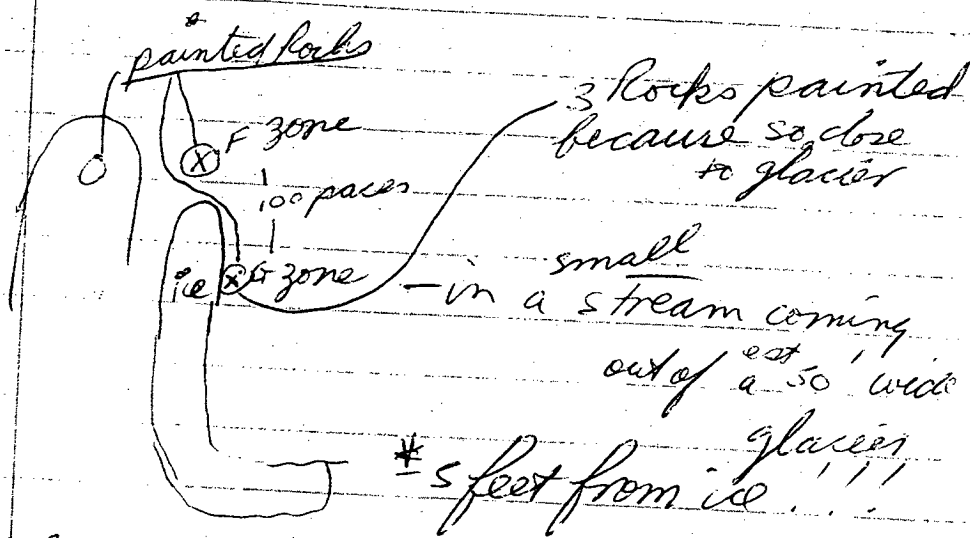 painted Rocks
F zone
100 paces
ice
G zone
3 Rocks painted
because so close
to glacier
- in a small stream coming
out of a est 50' wide
glacier
* 5 feet from ice !!!